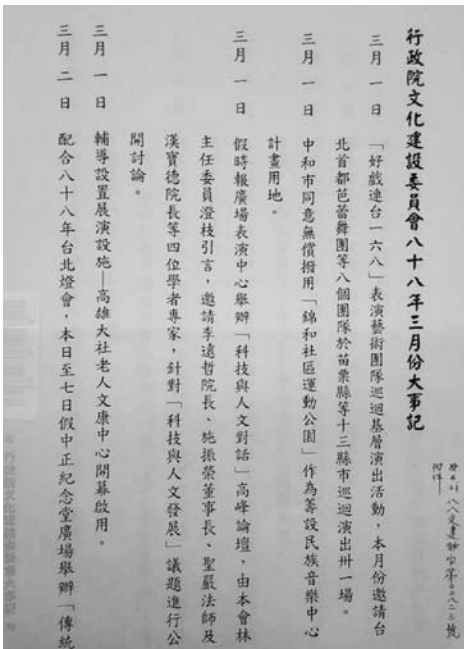 行政院文化建設委員會八十八年三月份大事記
三月一日 「好戲連台一六八」表演藝術團隊巡迴基層演出活動，本月份邀請台
北首都芭蕾舞團等八個團隊於苗栗縣等十三縣市巡迴演出卅一場。
三月一日 中和市同意無償撥用「錦和社區運動公園」作為籌設民族音樂中心
計畫用地。
三月一日 假時報廣場表演中心舉辦「科技與人文對話」高峰論壇，由本會林
主任委員澄枝引言，邀請李遠哲院長、施振榮董事長、聖嚴法師及
漢寶德院長等四位學者專家，針對「科技與人文發展」議題進行公
開討論。
三月一日 輔導設置展演設施—高雄大社老人文康中心開幕啟用。
三月二日 配合八十八年台北燈會，本日至七日假中正紀念堂廣場舉辦「傳統